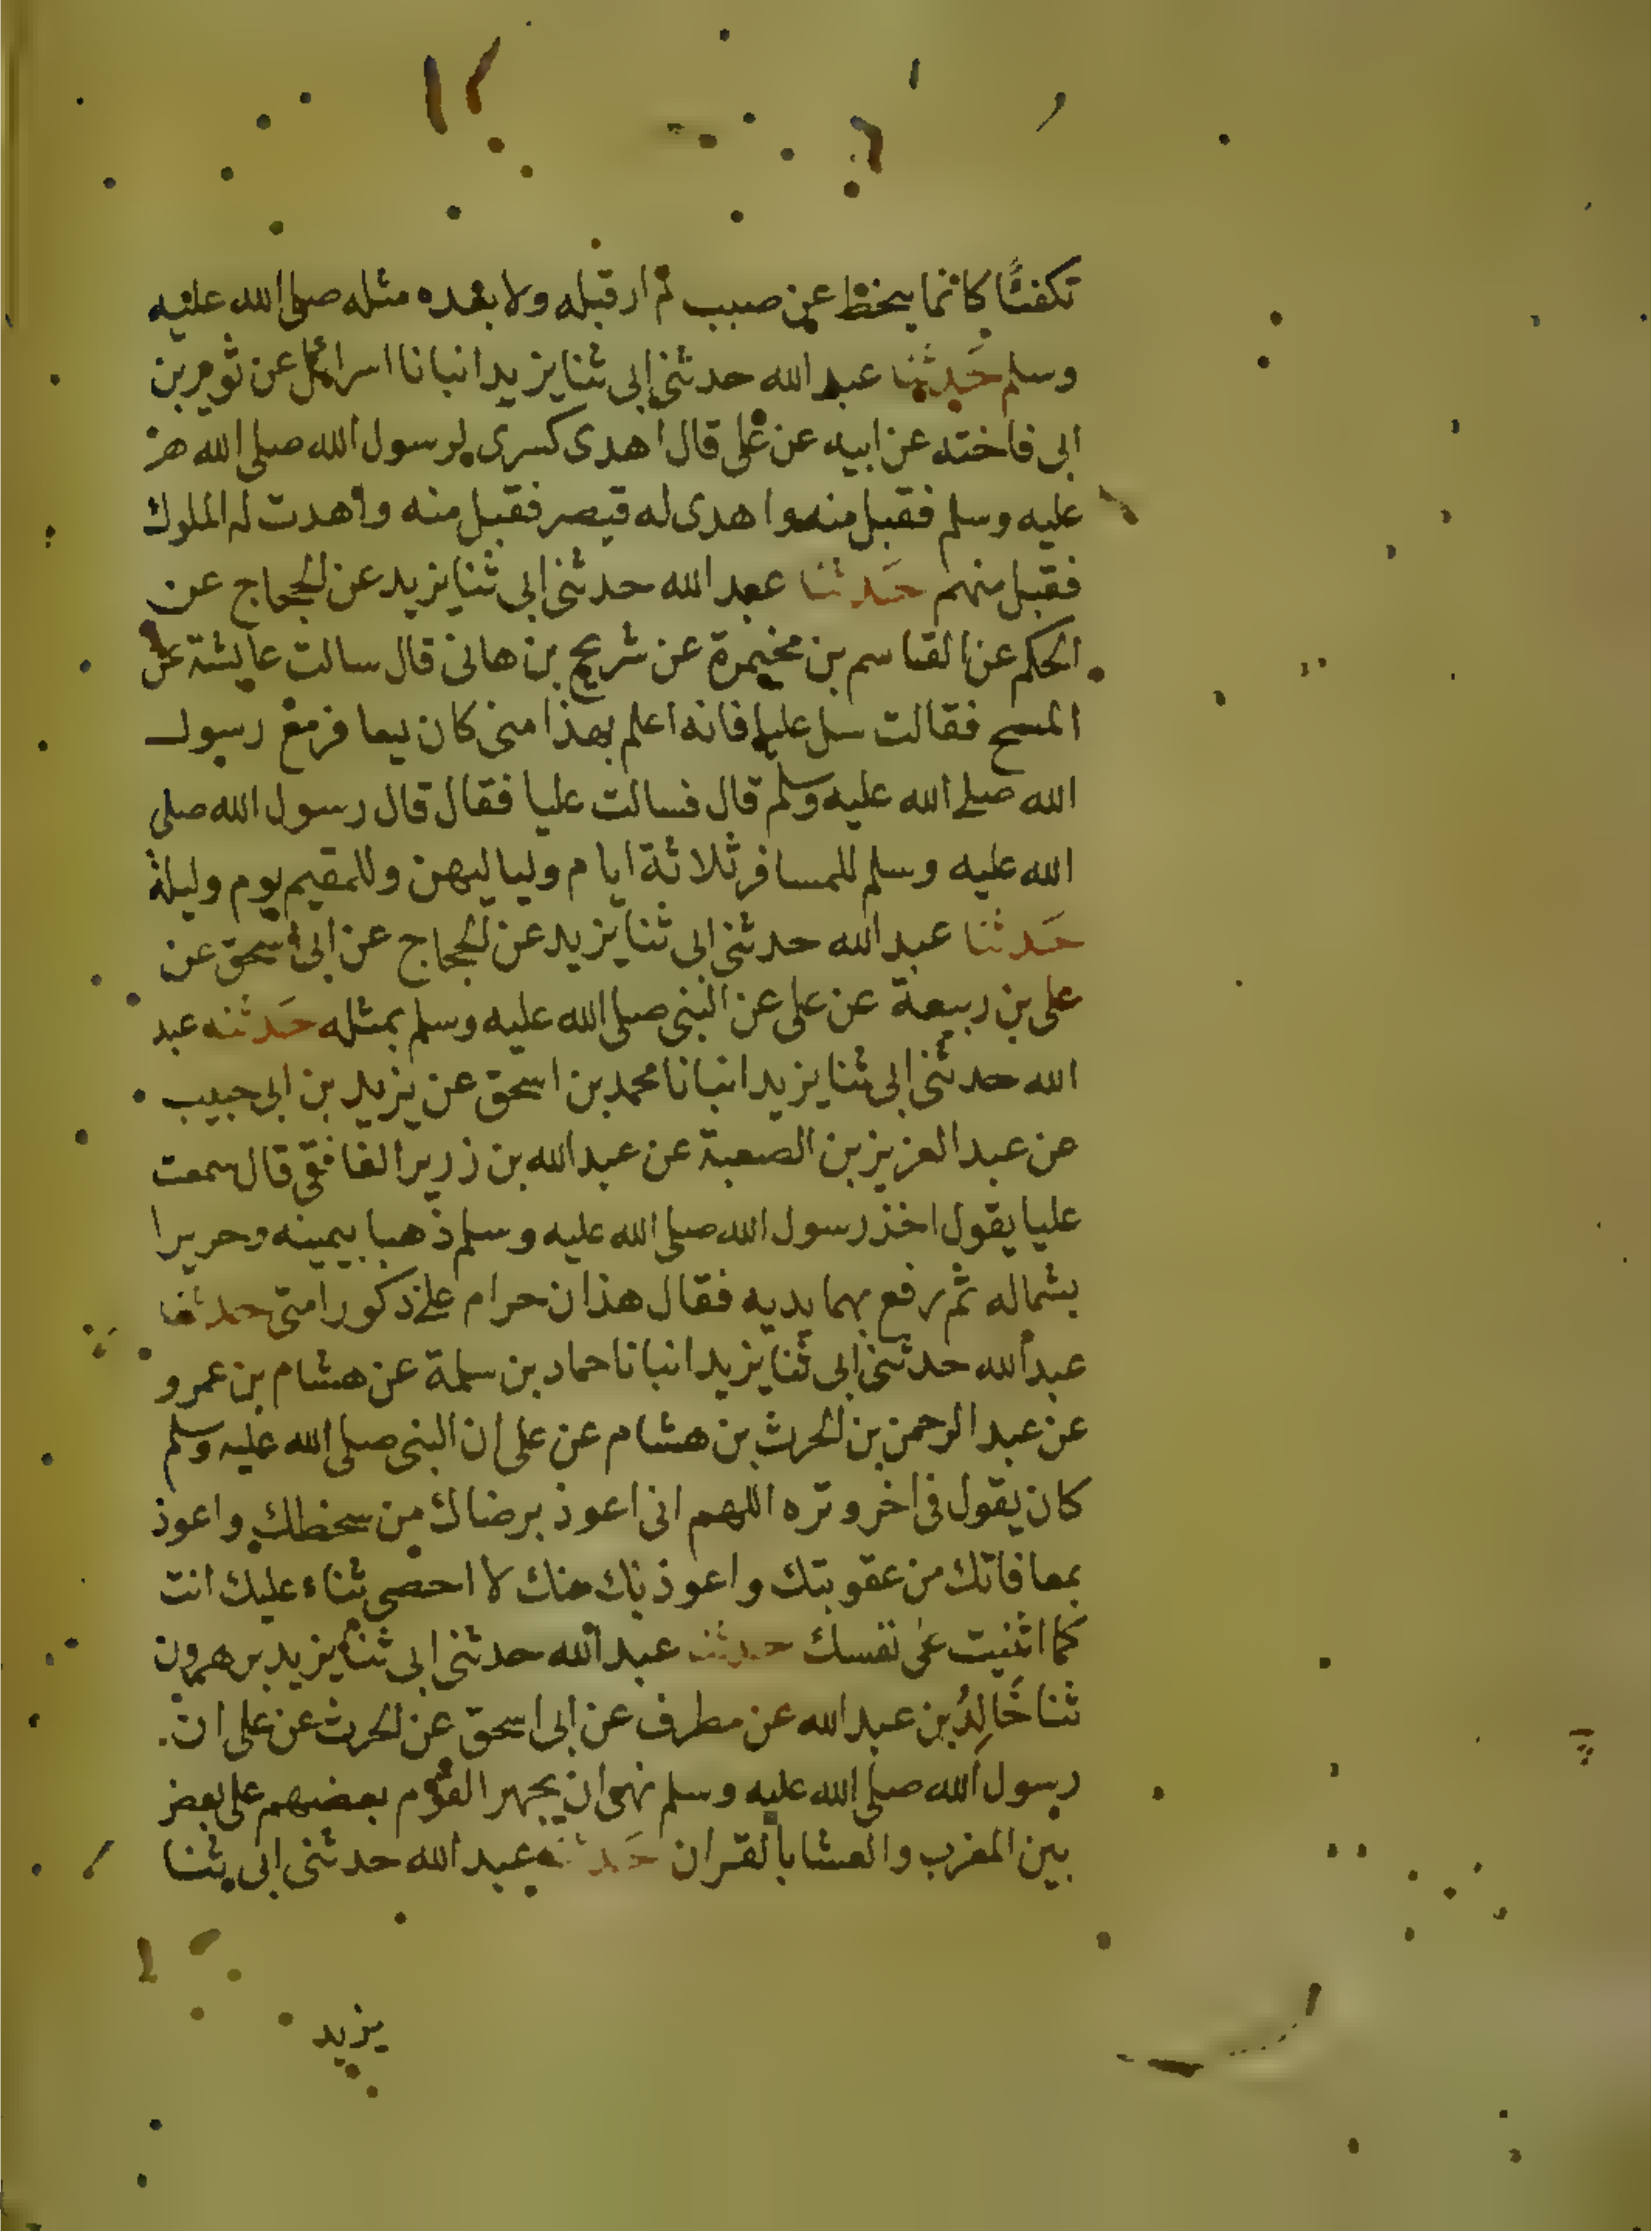 تكفئا كانما ينحط من صبب لم ار قبله ولا بعده مثله صلى الله عليه
وسلم حدثنا عبد الله حدثني ابي ثنا يزيد انبانا اسرائل عن ثوير بن
ابي فاخته عن ابيه عن علي قال اهدى كسرى لرسول الله صلى الله
عليه وسلم فقبل منه واهدى له قيصر فقبل منه واهدت له الملوك
فقبل منهم حدثنا عبد الله حدثني ابي ثنا يزيد عن الحجاج عن
الحكم عن القاسم بن مخيمرة عن شريح بن هاني قال سالت عايشة عن
المسح فقالت سل عليا فانه اعلم بهذا مني كان يسافر مع رسول
الله صلى الله عليه وسلم قال فسالت عليا فقال قال رسول الله صلى
الله عليه وسلم للمسافر ثلاثة ايام ولياليهن وللمقيم يوم وليلة
حدثنا عبد الله حدثني ابي ثنا يزيد عن الحجاج عن ابي اسحق عن
علي بن ربيعة عن علي عن النبي صلى الله عليه وسلم بمثله حدثنا عبد
الله حدثني ابي ثنا يزيد انبانا محمد بن اسحق عن يزيد بن ابي حبيب
عن عبد العزيز بن الصعبة عن عبد الله بن زرير الغافقي قال سمعت
عليا يقول اخذ رسول الله صلى الله عليه وسلم ذهبا بيمينه وحريرا
بشماله ثم رفع بهما يديه فقال هذان حرام على ذكور امتي حدثنا
عبد الله حدثني ابي ثنا يزيد انبانا حماد بن سلمة عن هشام بن عمرو
عن عبد الرحمن بن الحرث بن هشام عن علي ان النبي صلى الله عليه وسلم
كان يقول في اخر وتره اللهم اني اعوذ برضاك من سخطك واعوذ
بمعافاتك من عقوبتك واعوذ بك منك لا احصي ثناء عليك انت
كما اثنيت على نفسك حدثنا عبد الله حدثني ابي ثنا يزيد بن هرون
ثنا خَالِدُ بن عبد الله عن مطرف عن ابي اسحق عن الحرث عن علي ان
رسول الله صلى الله عليه وسلم نهى ان يجهر القوم بعضهم على بعض
بين المغرب والعشا بالقران حدثنا عبد الله حدثني ابي ثنا
يزيد